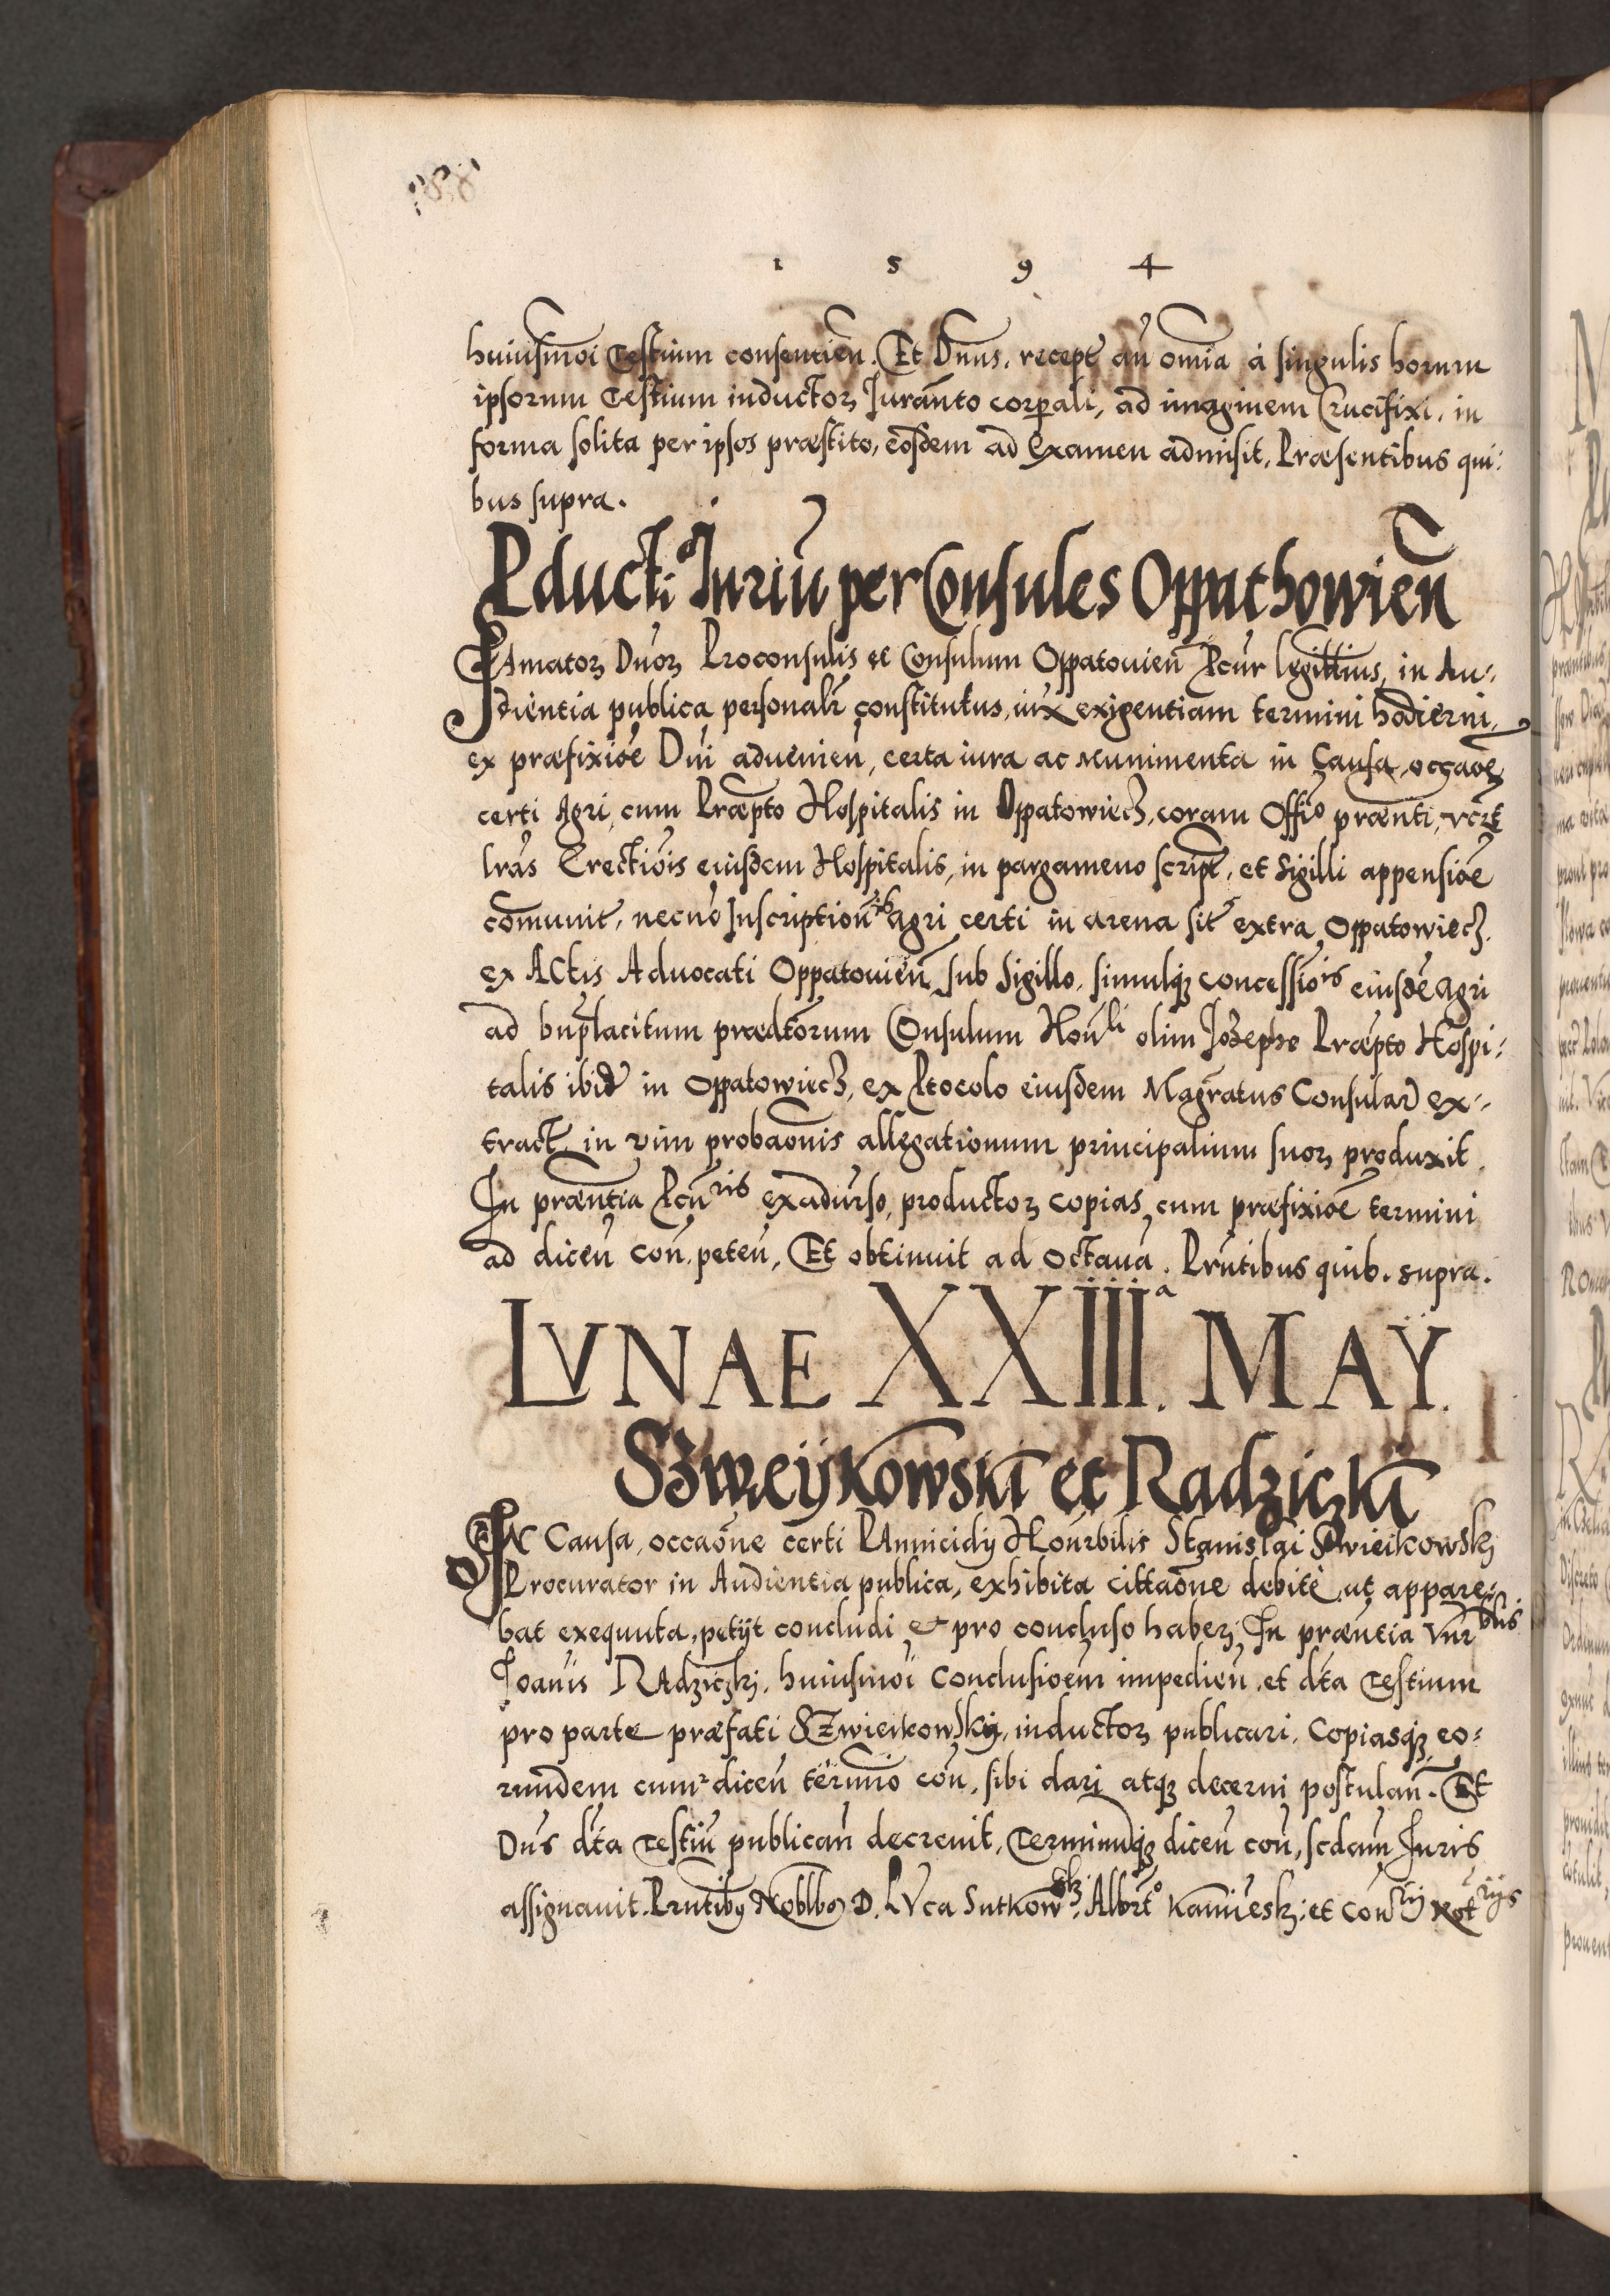 1 5 9 4
huiusmoi Testium consentien̄. Et Dn̄us. recept̄ an̄ om̄ia à singulis horum
ipsorum Testium inductoꝝ Iuran̄to corporali, ad imaginem Crucifixi, in
forma solita per ipsos præstito, eosdem ad Examen admisit, Præsentibus qui:
bus supra.
Pducti.º Iuriū per Consules Oppathowien̄
FAmatoꝝ Dn̄oꝝ Proconsulis et Consulum Oppatouien̄ Pcur̄ legittimus, in Au:
dientia publica personalr̄ constitutus, iux̄ exigentiam termini hodierni,
ex præfixiōe Dn̄i aduenien̄, certa iura ac Munimenta in Causa, occaōe
certi Agri, cum Præpto Hospitalis in Oppatowiecz, coram Offiº præn̄ti, vert̄
lr̄as Erectiōis eiusdem Hospitalis, in pargameno script̄, et Sigilli appensiōe
com̄unit̄, necnō Inscription̄ib agri certi in arena sit̄ extra Oppatowiecz.
ex ACtis Aduocati Oppatouien̄, sub Sigillo, simulqꝫ concessiōis eiusdē Agri
ad bn̄placitum prædtōrum Consulum Hon̄li olim Iozepho Præpto Hospi:
talis ibid̄ in Oppatowiecz, ex Ptocolo eiusdem Magr̄atus Consular̄ ex:
tract̄, in vim probaōnis allegationum principalium suoꝝ produxit.
In præn̄tia Pcūris exaduerso, productoꝝ copias, cum præfixiōe termini
ad dicen̄ con̄. peten̄, Et obtinuit ad Octauā. Prn̄tibus quib. supra.
LVNAE XXIIIª. MAŸ.
Szweijkowski et Radziczki
IN Causa, occaōne certi PAnnicidij Hon̄rbilis Stanislai Szwieikowskj
Procurator in Audientia publica, exhibita cittaōne debitè, ut appare:
bat exequuta, petijt concludi et pro concluso haberj. In præn̄tia Vn̄rblis
Ioan̄is RAdziczkj, huiusmoi conclusioēm impedien̄, et dt̄a Testium
pro parte præfati SZwieikowskij, inductoꝝ publicari, Copiasqꝫ eo:
rundem cum dicen̄ termīo con̄, sibi dari atqꝫ decerni postulan̄. Et
Dn̄s dt̄a Testiū publican̄ decreuit, Terminūqꝫ dicen̄ con̄, scdam̄ Iuris
assignauit. Prn̄tibꝰ Noblbꝰ D. LVca Sutkowskj, Albrt̄º Kamieskj: et Con̄rij Not̄rijs